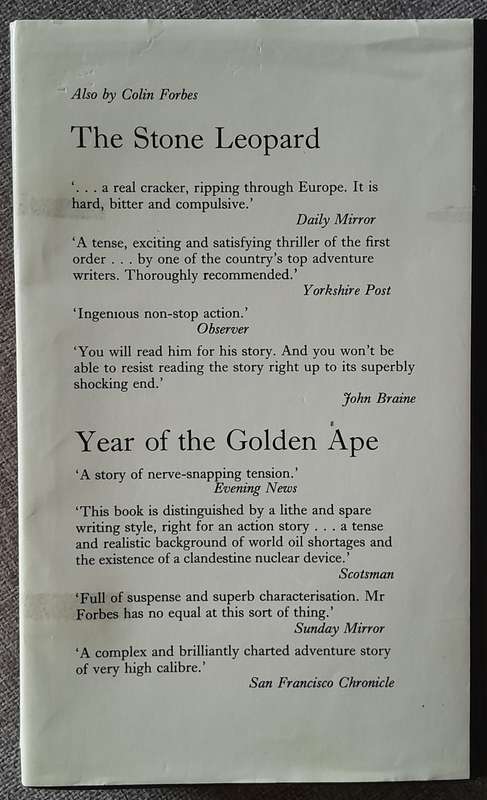 Also by Colin Forbes
The Stone Leopard
‘. . . a real cracker, ripping through Europe. It is
hard, bitter and compulsive.’
Daily Mirror
‘A tense, exciting and satisfying thriller of the first
order . . . by one of the country’s top adventure
writers. Thoroughly recommended.’
Yorkshire Post
‘Ingenious non-stop action.’
Observer
‘You will read him for his story. And you won’t be
able to resist reading the story right up to its superbly
shocking end.’
John Braine
Year of the Golden Ape
‘A story of nerve-snapping tension.’
Evening News
‘This book is distinguished by a lithe and spare
writing style, right for an action story . . . a tense
and realistic background of world oil shortages and
the existence of a clandestine nuclear device.’
Scotsman
‘Full of suspense and superb characterisation. Mr
Forbes has no equal at this sort of thing.’
Sunday Mirror
‘A complex and brilliantly charted adventure story
of very high calibre.’
San Francisco Chronicle